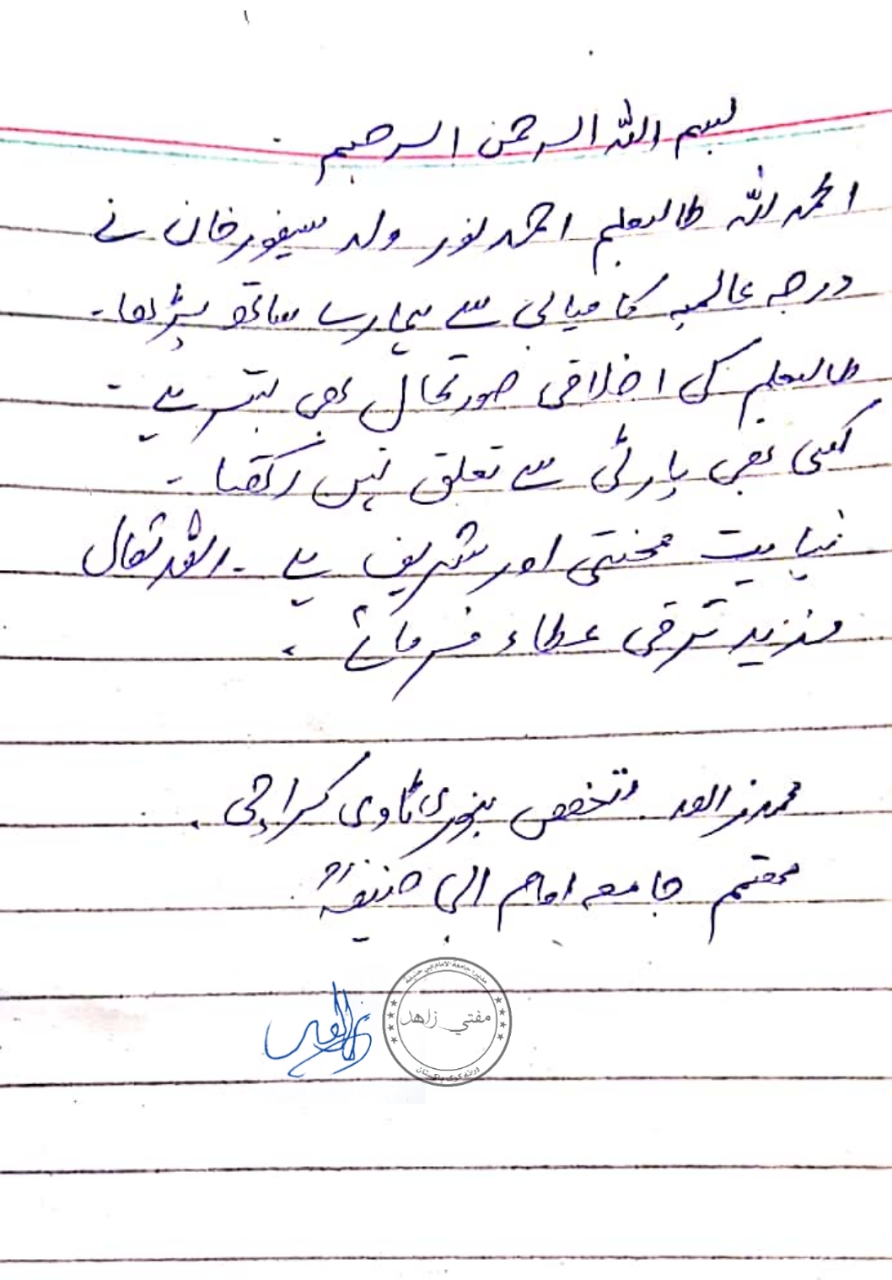 بسم اللہ الرحمن الرحیم
الحمد للہ طالبعلم احمد نور ولد سیفور خان نے
درجہ عالمیہ کامیابی سے ہمارے ساتھ پڑھا۔
طالبعلم کی اخلاقی صورتحال بھی بہتر ہے۔
کسی بھی پارٹی سے تعلق نہیں رکھتا۔
نہایت محنتی اور شریف ہے۔ اللہ تعالیٰ
مزید ترقی عطاء فرمائے۔
متخصص بنوری ٹاون کراچی۔
مهتمم جامعہ امام ابی حنیفہؒ
مدير: جامعة الامام ابي حنيفة
مفتي زاهد